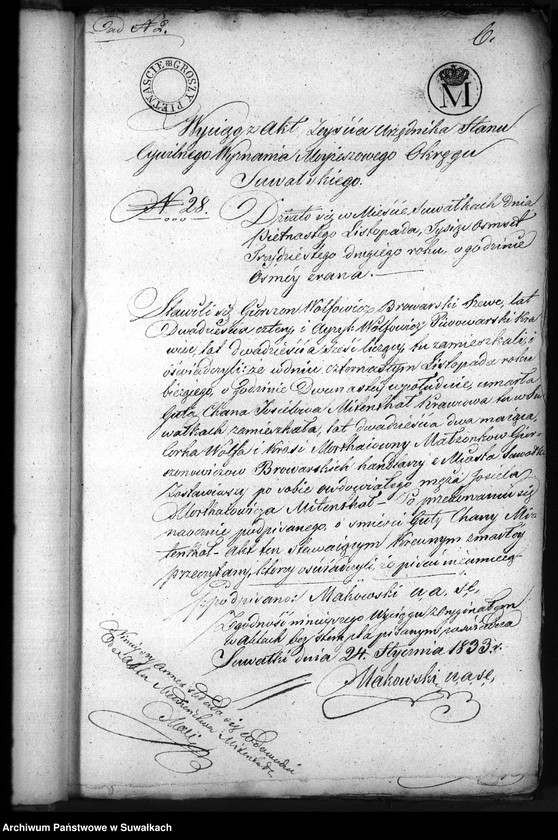 Ad N 2.
6.
PIETNAŚCIE GROSZY
M
Wyciąg z Akt Zeyścia Urzędnika Stanu
Cywilnego Wyznania Moyżeszowego Okręgu
Suwalskiego.
N 28. Działo się w Mieście Suwałkach dnia
Piętnastego Listopada, Tysiąc Osmset
Trzydziestego drugiego roku, o godzinie
Osméy zrana.
Stawili się Gierszon Wolfowicz Browarski Szewc, lat
Dwadzieścia cztery i Wolfowicz Piwowarski Kra
wiec, lat dwadzieścia sześć liczący, tu zamieszkali, i
oświadczyli; że w dniu czternastym Listopada roku
bieżącego, o godzinie Dwunastey w południe, umarła
Guta Chana Joselowa Mitenthal Krawcowa tu w Su
wałkach zamieszkała, lat dwadzieścia dwa maiąca,
córka Wolfa i Małżonków Gier
szonowiczow Browarskich handlarzy z Miasta Suwałk
Zostawiwszy po sobie owdowiałego męża Josiela
Morthelowicza Mitenthal. Po przekonaniu się
naocznie podpisanego, o śmierci Guty Chany Mi
tenthal. Akt ten stawaiącym Krewnym zmarłey
przeczytany, którzy oświadczyli, iż pisać nieumieią
podpisano: Makowski u. a. s. c.
Zgodność ninieyszego Wyciągu z Oryginałem
w aktach bez stempla pisanym poświadcza
Suwałki dnia 24. Stycznia 1833 r.
Makowski u. a. s. c.
Ninieyszy annex składa się w dowodzie
do Aktu Małżeństwa Mitenthal
Archiwum Państwowe w Suwałkach